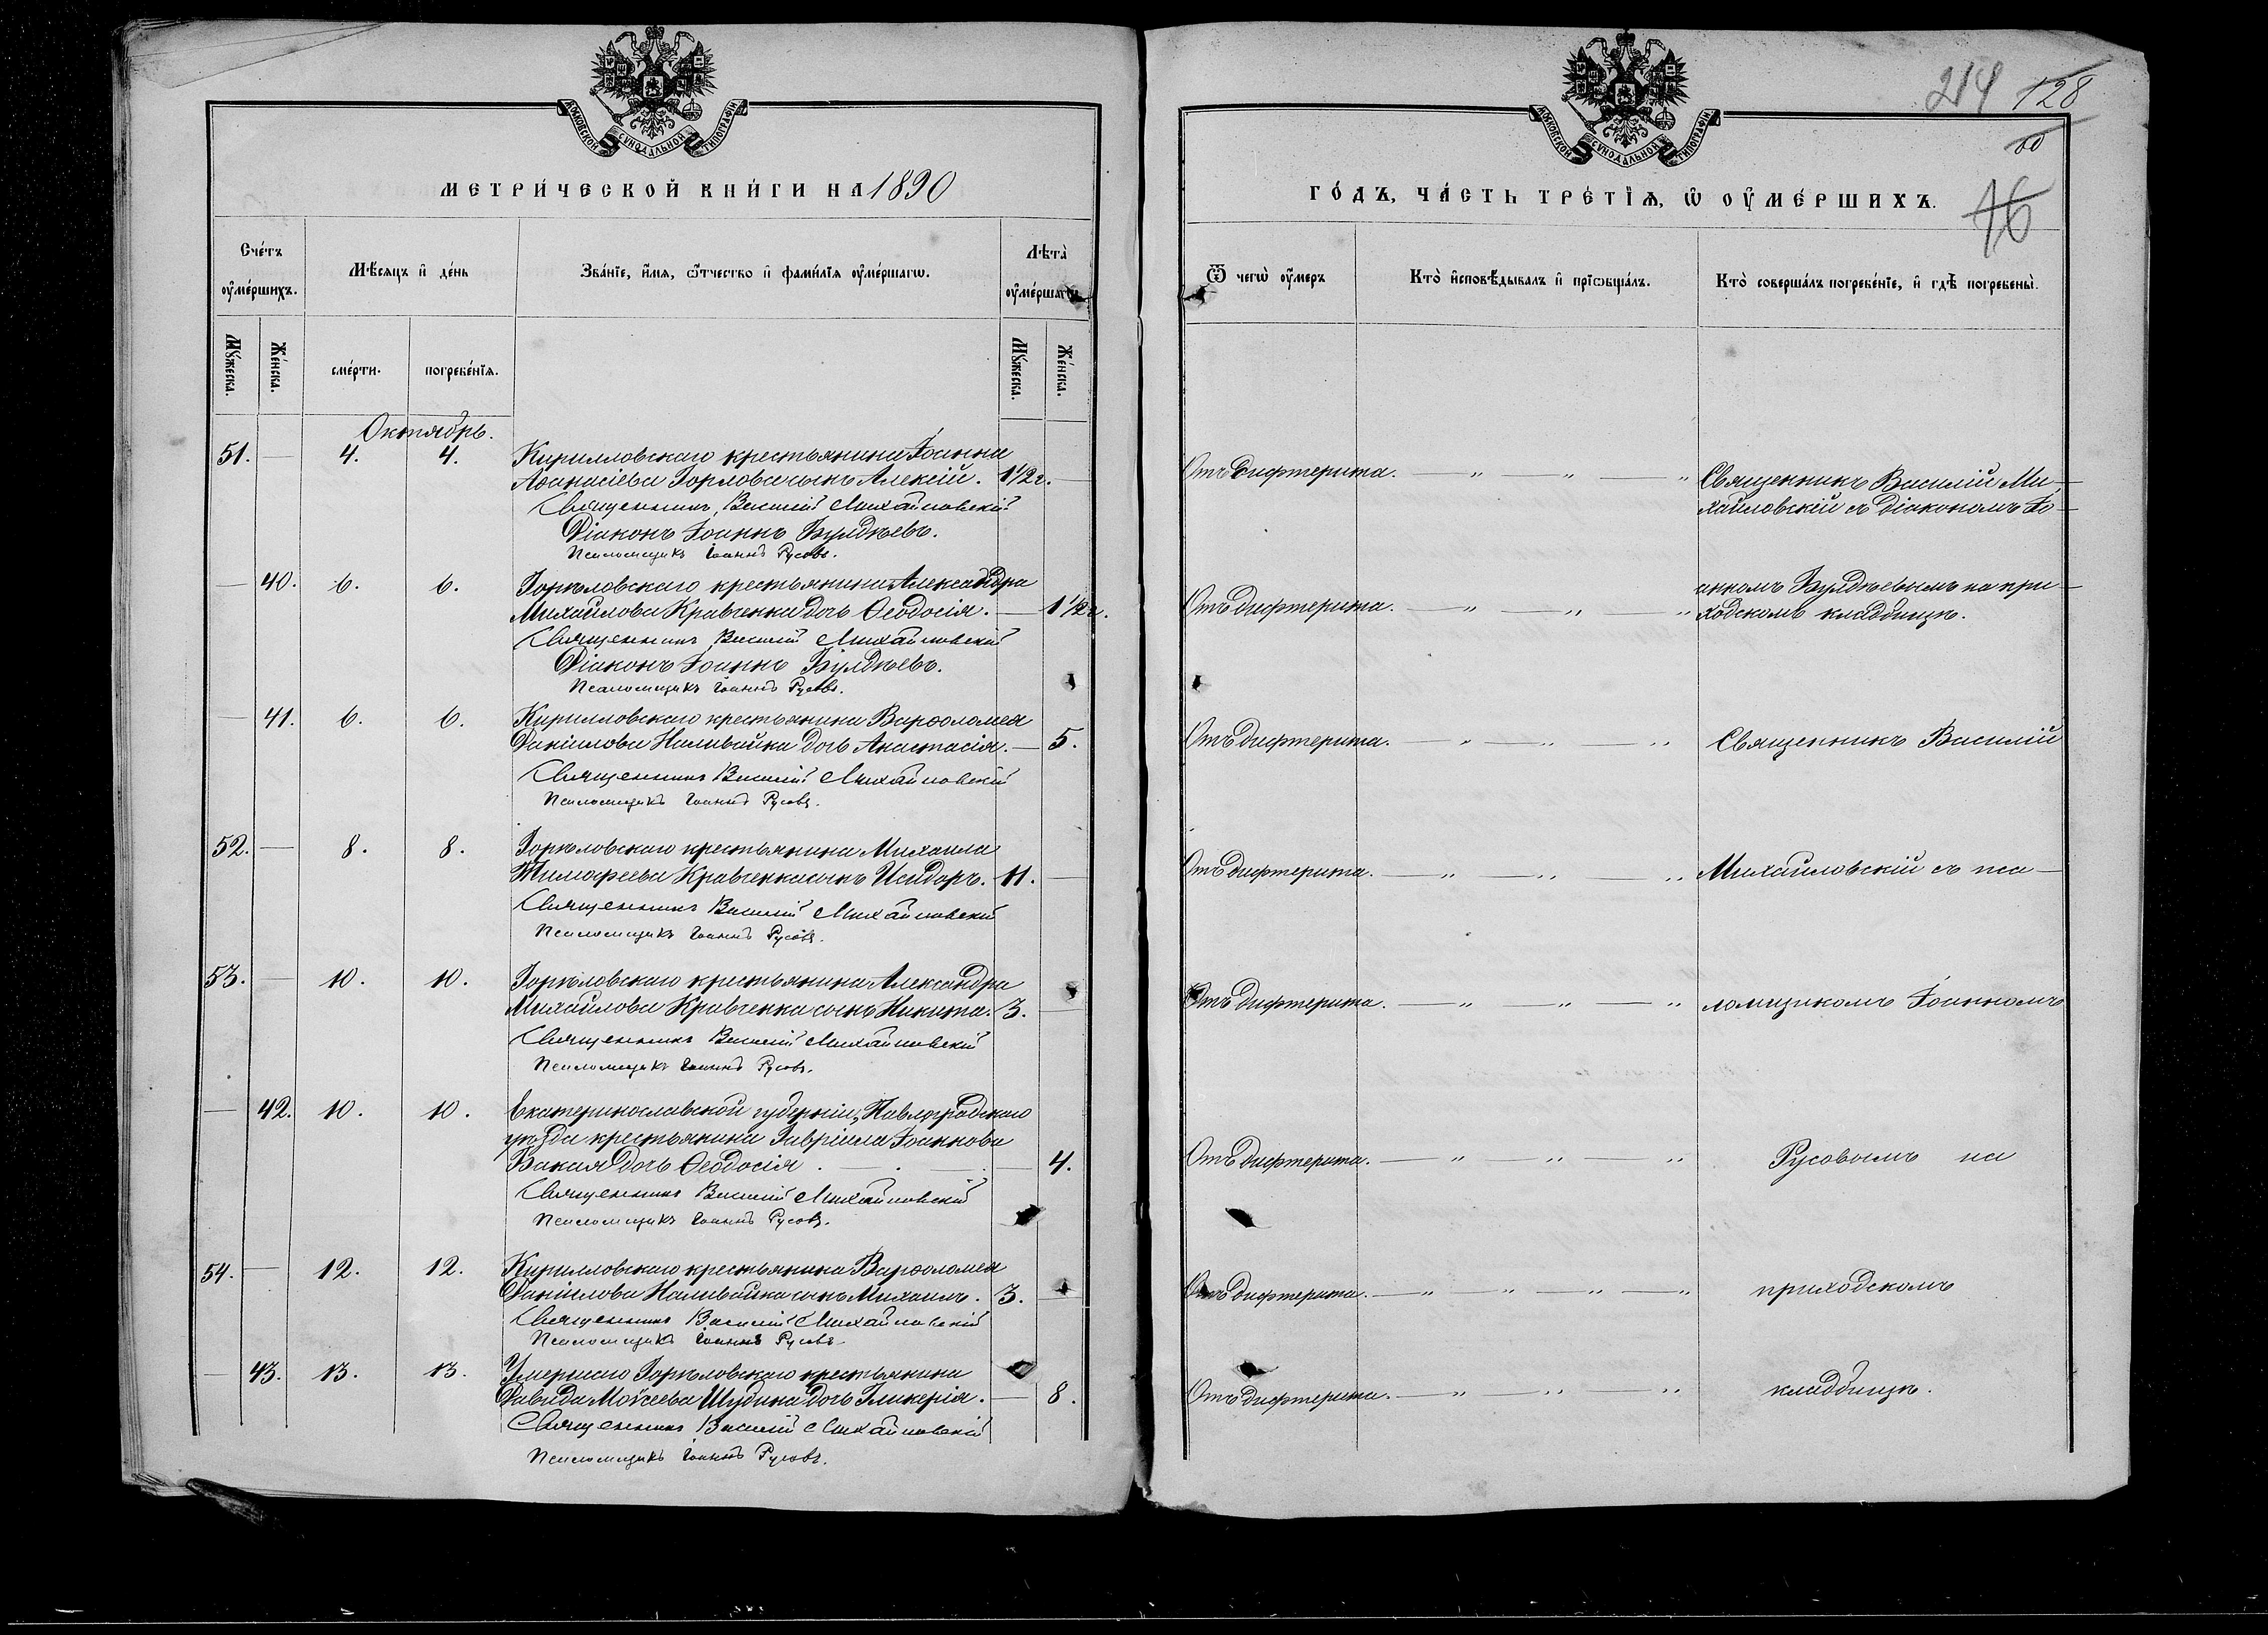 МОСКОВСКОЙ СѴНОДАЛЬНОЙ ТИПОГРАФІИ
МЕТРИ́ЧЕСКОЙ КНИ́ГИ НА 1890
Сче́тъ оу҆ме́ршихъ.
Мѣ́сяцъ и҆ де́нь
Зва́нїе, и҆́мя, ѻ҆́тчество и҆ фами́лїя оу҆ме́ршагѡ.
Лѣ́та оу҆ме́ршагѡ
Мꙋ́жеска.
Же́нска.
сме́рти.
погребе́нїѧ.
Мꙋ́жеска.
Же́нска.
Октябрь.
51. — 4. 4. Кирилловскаго крестьянина Іоанна
Аѳанасіева Горлова сынъ Алексій. 1½ г. —
Священникъ Василій Михайловскій
Діаконъ Іоаннъ Булдѣевъ.
Псаломщикъ Іоаннъ Русовъ.
— 40. 6. 6. Горѣловскаго крестьянина Александра
Михайлова Кравченка дочь Ѳеодосія. — 1½ г.
Священникъ Василій Михайловскій
Діаконъ Іоаннъ Булдѣевъ.
Псаломщикъ Іоаннъ Русовъ.
— 41. 6. 6. Кирилловскаго крестьянина Варѳоломея
Даніилова Наливайка дочь Анастасія. — 5.
Священникъ Василій Михайловскій
Псаломщикъ Іоаннъ Русовъ.
52. — 8. 8. Горѣловскаго крестьянина Михаила
Тимофеева Кравченка сынъ Исидоръ. 11. —
Священникъ Василій Михайловскій
Псаломщикъ Іоаннъ Русовъ.
53. — 10. 10. Горѣловскаго крестьянина Александра
Михайлова Кравченка сынъ Никита. 3. —
Священникъ Василій Михайловскій
Псаломщикъ Іоаннъ Русовъ.
— 42. 10. 10. Екатеринославской губерніи, Павлоградскаго
уѣзда крестьянина Гавріила Іоаннова
Бакая дочь Ѳеодосія . — . — 4.
Священникъ Василій Михайловскій
Псаломщикъ Іоаннъ Русовъ.
54. — 12. 12. Кирилловскаго крестьянина Варѳоломея
Даніилова Наливайка сынъ Михаилъ. 3. —
Священникъ Василій Михайловскій
Псаломщикъ Іоаннъ Русовъ
— 43. 13. 13. Умершаго Горѣловскаго крестьянина
Давида Моѵсеева Шудика дочь Гликерія. — 8.
Священникъ Василій Михайловскій
Псаломщикъ Іоаннъ Русовъ.
МОСКОВСКОЙ СѴНОДАЛЬНОЙ ТИПОГРАФІИ
214 128
16
ГО́ДЪ, ЧА́СТЬ ТРЕ́ТЇѦ, Ѡ҆ ОУ҆МЕ́РШИХЪ.
Ѿ чегѡ̀ оу҆́меръ
Кто̀ и҆сповѣ́дывалъ и҆ прїѡбща́лъ.
Кто̀ соверша́лъ погребе́нїе, и҆ гдѣ̀ погребены̀.
Отъ дифтерита. — „ — „ — „ Священникъ Василій Ми-
хайловскій съ діакономъ Іо-
анномъ Булдѣевымъ на при-
Отъ дифтерита. — „ — „ „ ходскомъ кладбищѣ.
Отъ дифтерита. — „ — „ — „ Священникъ Василій
Отъ дифтерита. — „ — „ — „ Михайловскій съ пса-
Отъ дифтерита. — „ — „ — „ ломщикомъ Іоанномъ
Отъ дифтерита. — „ — „ — „ Русовымъ на
Отъ дифтерита. — „ — „ — „ — „ приходскомъ
Отъ дифтерита. — „ — „ — „ кладбищѣ.